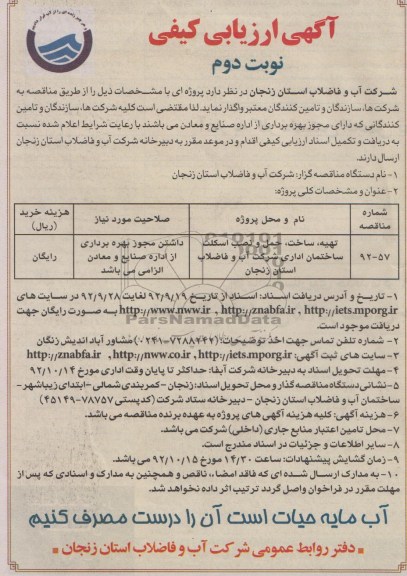 آگهی ارزیابی کیفی
نوبت دوم
شرکت آب و فاضلاب استان زنجان در نظر دارد پروژه ای با مشخصات ذیل را از طریق مناقصه به
شرکت ها، سازندگان و تامین کنندگان معتبر واگذار نماید. لذا مقتضی است کلیه شرکت ها، سازندگان و تامین
کنندگانی که دارای مجوز بهره برداری از اداره صنایع و معادن می باشند با رعایت شرایط اعلام شده نسبت
به دریافت و تکمیل اسناد ارزیابی کیفی اقدام و در موعد مقرر به دبیرخانه شرکت آب و فاضلاب استان زنجان
ارسال دارند.
۱- نام دستگاه مناقصه گزار: شرکت آب و فاضلاب استان زنجان
۲- عنوان و مشخصات کلی پروژه:
شماره مناقصه | نام و محل پروژه | صلاحیت مورد نیاز | هزینه خرید (ریال)
۹۲-۵۷ | تهیه، ساخت، حمل و نصب اسکلت ساختمان اداری شرکت آب و فاضلاب استان زنجان | داشتن مجوز بهره برداری از اداره صنایع و معادن الزامی می باشد | رایگان
۱- تاریخ و آدرس دریافت اسناد: اسناد از تاریخ ۹۲/۹/۱۹ لغایت ۹۲/۹/۲۸ در سایت های
http://iets.mporg.ir , http://znabfa.ir , http://www.nww.ir به صورت رایگان جهت
دریافت موجود است.
ParsNamadData
۲- شماره تلفن تماس جهت اخذ توضیحات: (۷۲۸۸۴۴۷-۰۲۴۱) مشاور آباد اندیش زنگان
۳- سایت های ثبت آگهی: http://znabfa.ir , http://www.nww.co.ir , http://iets.mporg.ir
۴- مهلت تحویل اسناد به دبیرخانه شرکت آبفا: حداکثر تا پایان وقت اداری مورخ ۹۲/۱۰/۱۴
۵- نشانی دستگاه مناقصه گذار و محل تحویل اسناد: زنجان - کمربندی شمالی - ابتدای زیباشهر -
ساختمان آب و فاضلاب استان زنجان - دبیرخانه ستاد شرکت (کدپستی ۷۸۷۵۷-۴۵۱۴۹)
۶- هزینه آگهی: کلیه هزینه آگهی های پروژه به عهده برنده مناقصه می باشد.
۷- محل تامین اعتبار منابع جاری (داخلی) شرکت می باشد.
۸- سایر اطلاعات و جزئیات در اسناد مندرج است.
۹- زمان گشایش پیشنهادات: ساعت ۱۴/۳۰ مورخ ۹۲/۱۰/۱۵ می باشد.
۱۰- به مدارک ارسال شده ای که فاقد امضاء، ناقص و همچنین به مدارک و اسنادی که پس از
مهلت مقرر در فراخوان واصل گردد ترتیب اثر داده نخواهد شد.
آب مایه حیات است آن را درست مصرف کنیم
دفتر روابط عمومی شرکت آب و فاضلاب استان زنجان